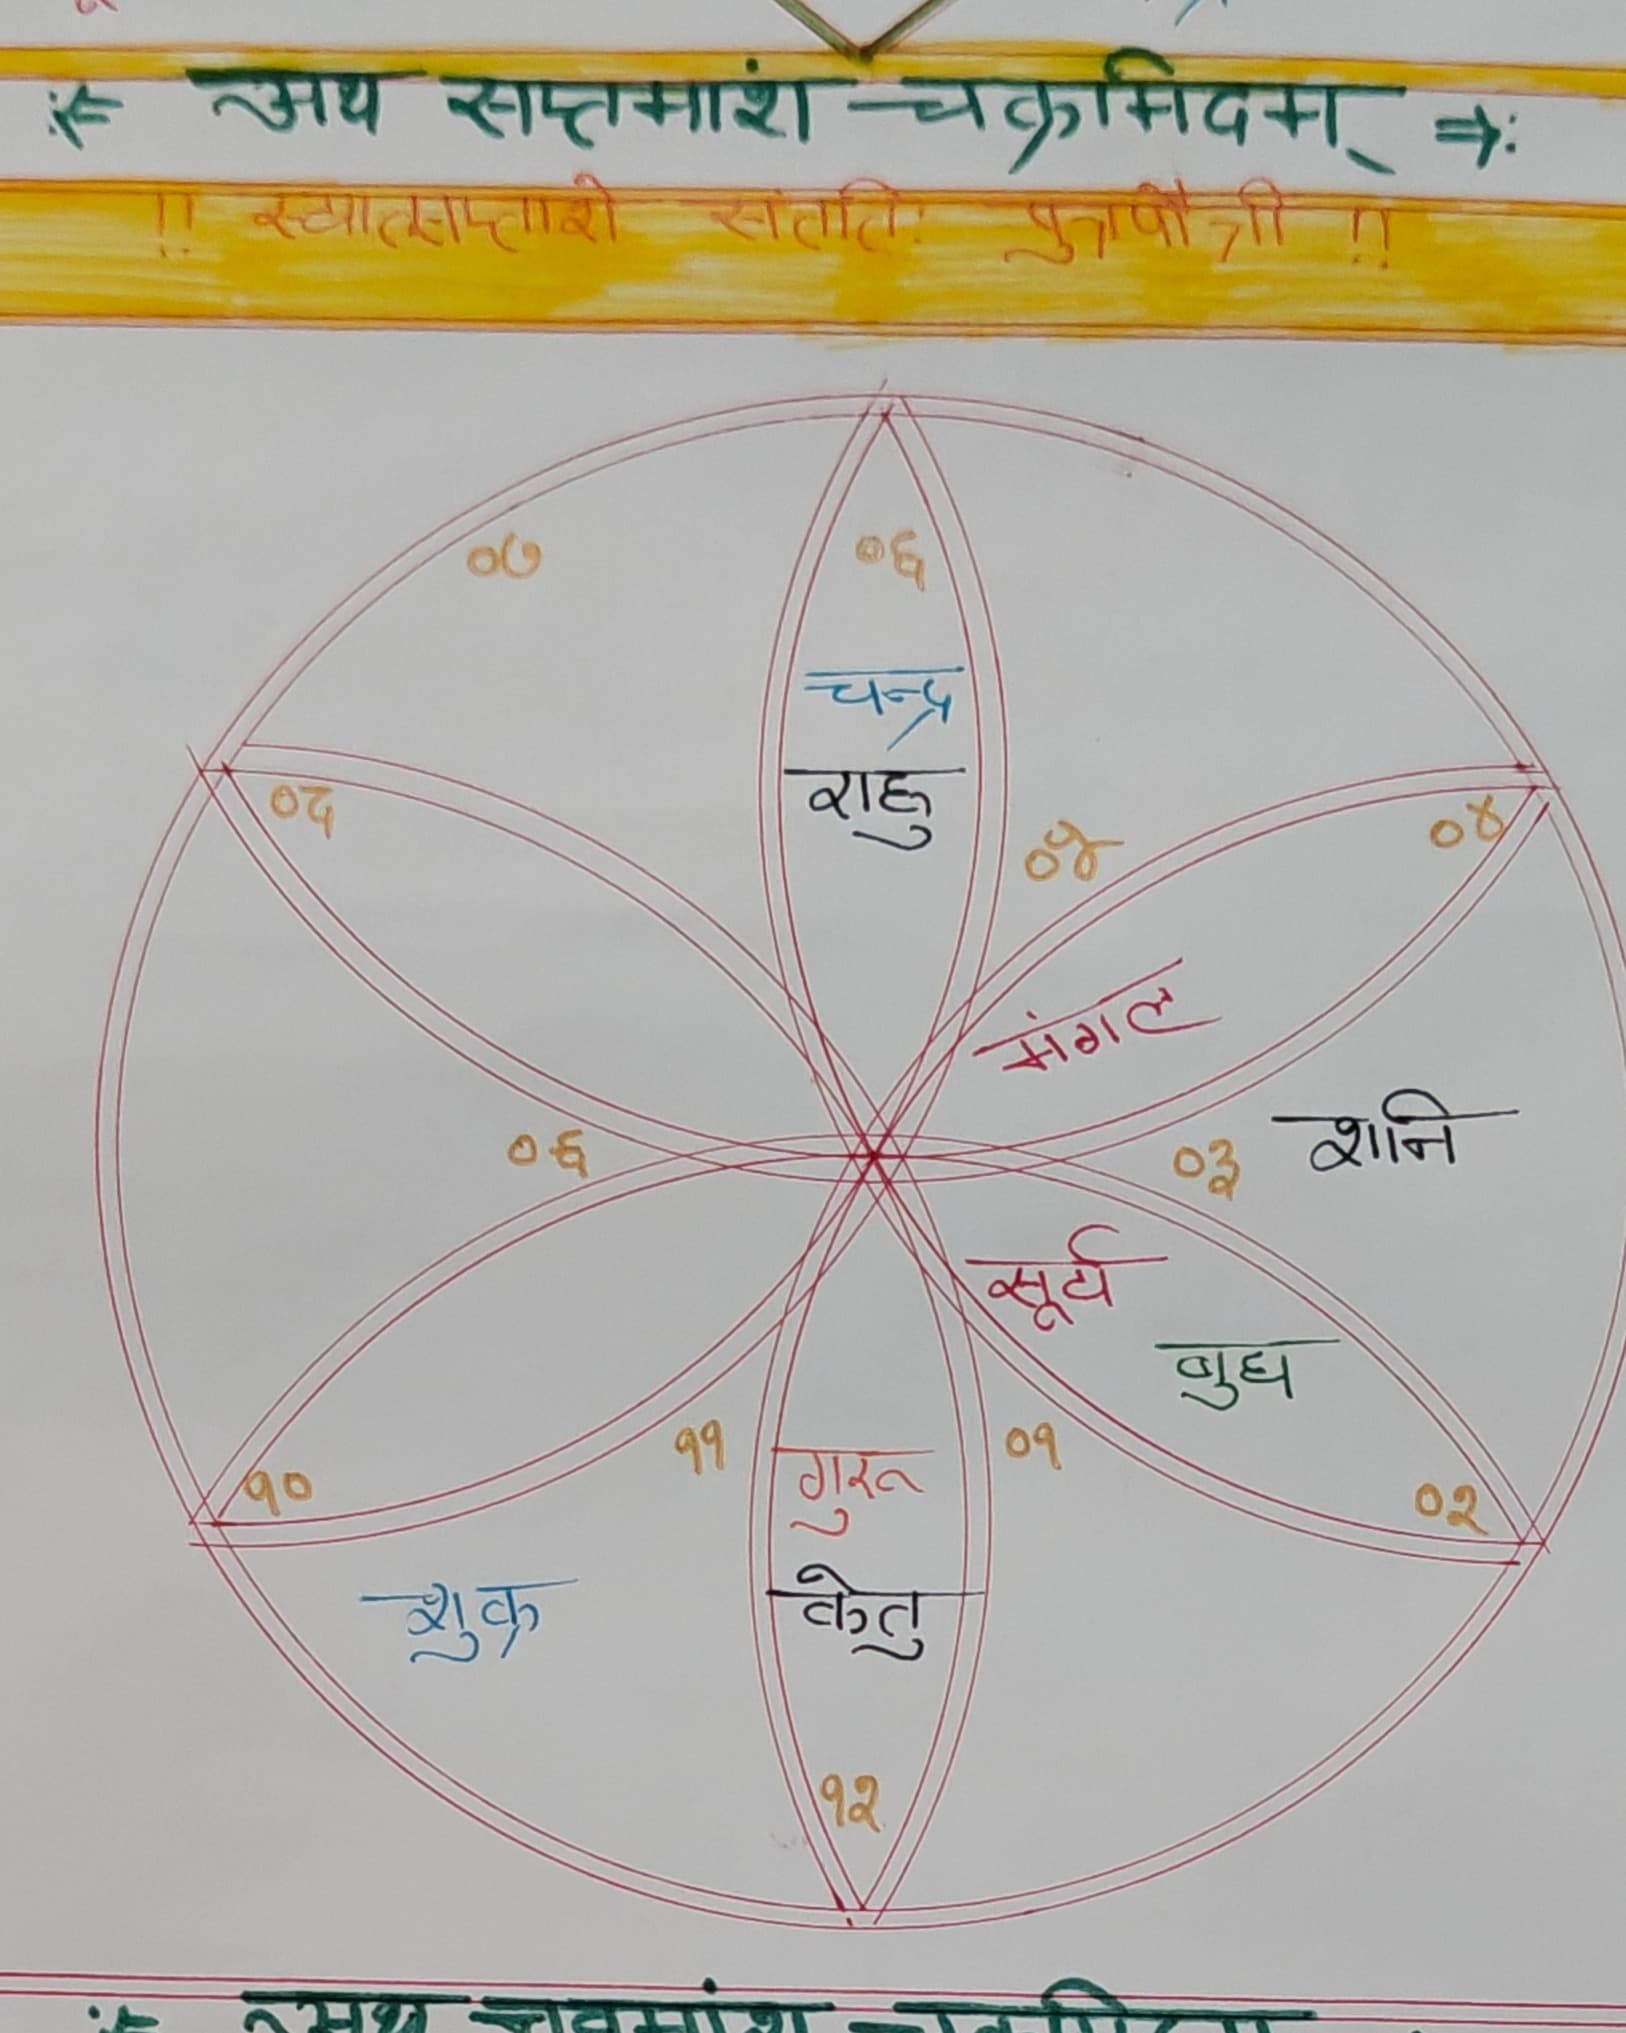 अथ सप्तमांश चक्रमिदम् ⇒:
!! स्यात्सप्तांशे संततिः पुत्रपौत्री !!
०७
०६
चन्द्र
राहु
०८
०५
०४
मंगल
०९
०३
शनि
सूर्य
बुध
११
०१
१०
०२
गुरू
शुक्र
केतु
१२
अथ नवमांश चक्रमिदम्